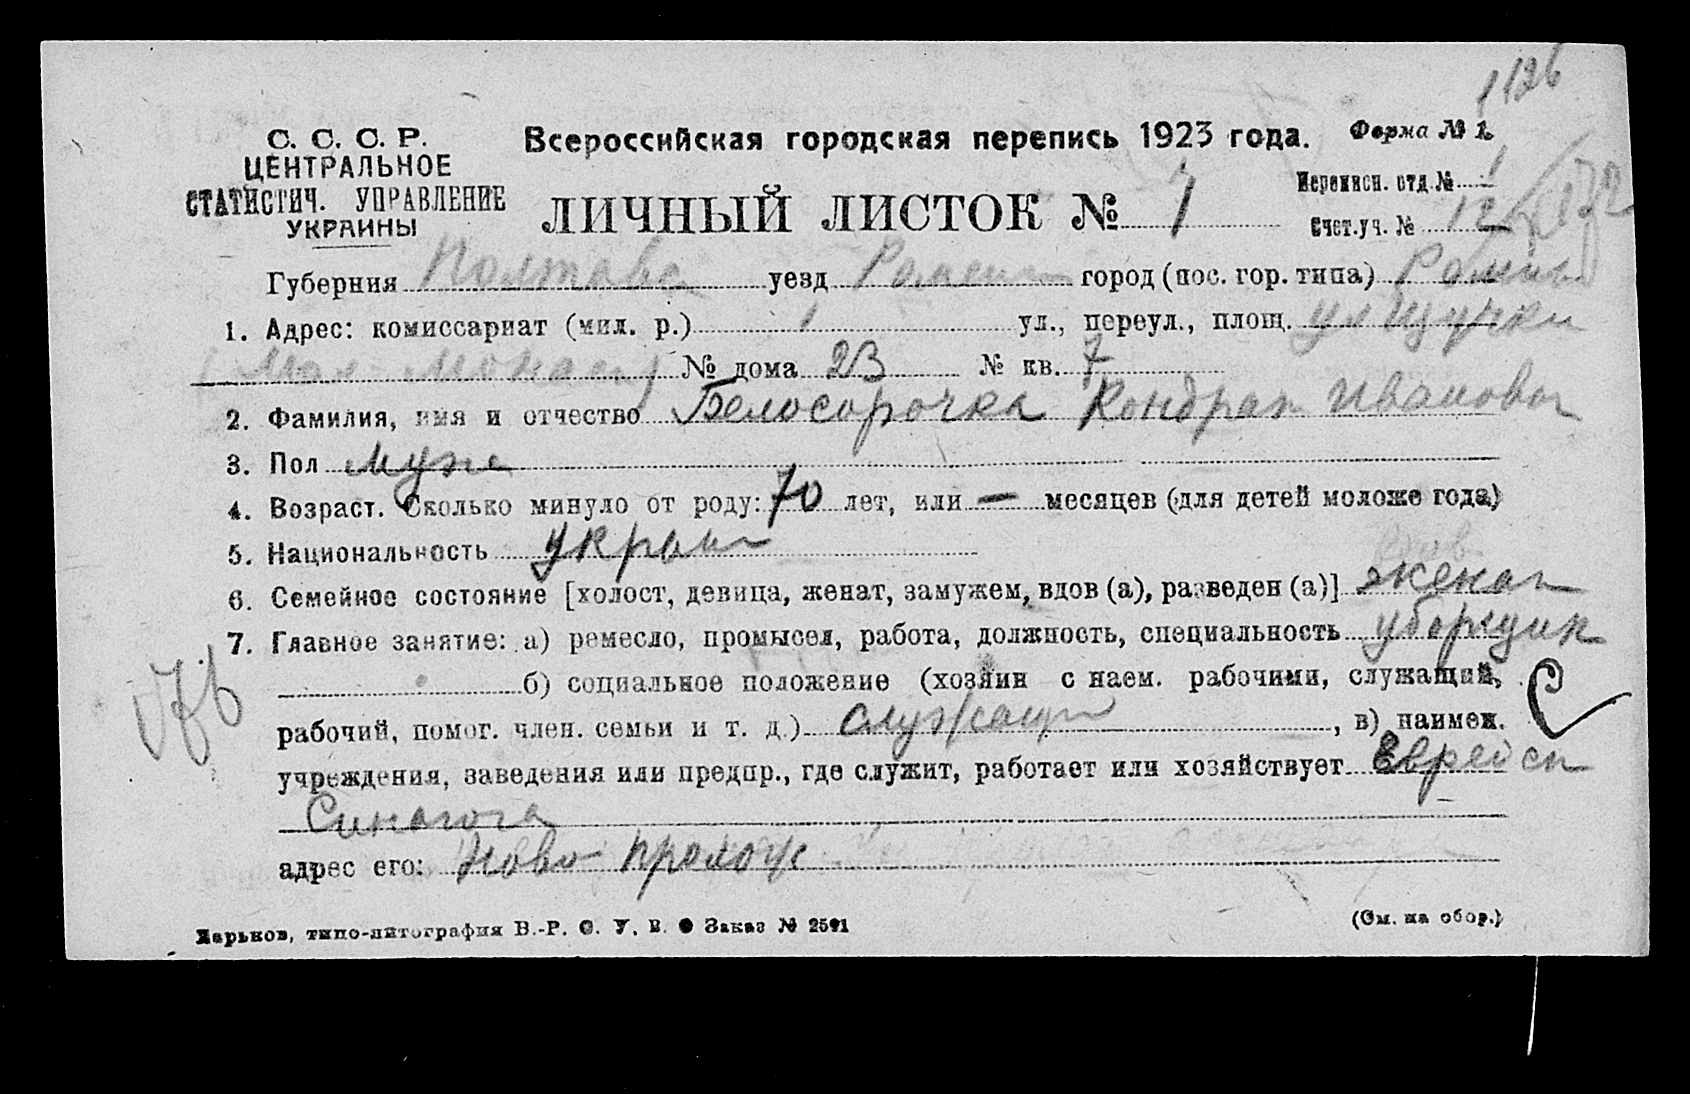 1126
С. С. С. Р.
ЦЕНТРАЛЬНОЕ
СТАТИСТИЧ. УПРАВЛЕНИЕ
УКРАИНЫ
Всероссийская городская перепись 1923 года. Форма № 1.
ЛИЧНЫЙ ЛИСТОК № 1
Переписн. отд. № 1
Счет. уч. № 12
Губерния Полтавс уезд Ромен город (пос. гор. типа) Ромны
1. Адрес: комиссариат (мил. р.) 1 ул., переул., площ. ул
№ дома 23 № кв. 7
2. Фамилия, имя и отчество Белосорочка Кондрат Иванович
3. Пол муж
4. Возраст. Сколько минуло от роду: 70 лет, или — месяцев (для детей моложе года)
5. Национальность украин
6. Семейное состояние [холост, девица, женат, замужем, вдов (а), разведен (а)] женат
7. Главное занятие: а) ремесло, промысел, работа, должность, специальность уборщик
б) социальное положение (хозяин с наем. рабочими, служащий,
рабочий, помог. член. семьи и т. д.) служащ, в) наимен.
учреждения, заведения или предпр., где служит, работает или хозяйствует Еврейск
Синагога
адрес его: Ново
Харьков, типо-литография В.-Р. С. У. В. Заказ № 2591
(См. на обор.)